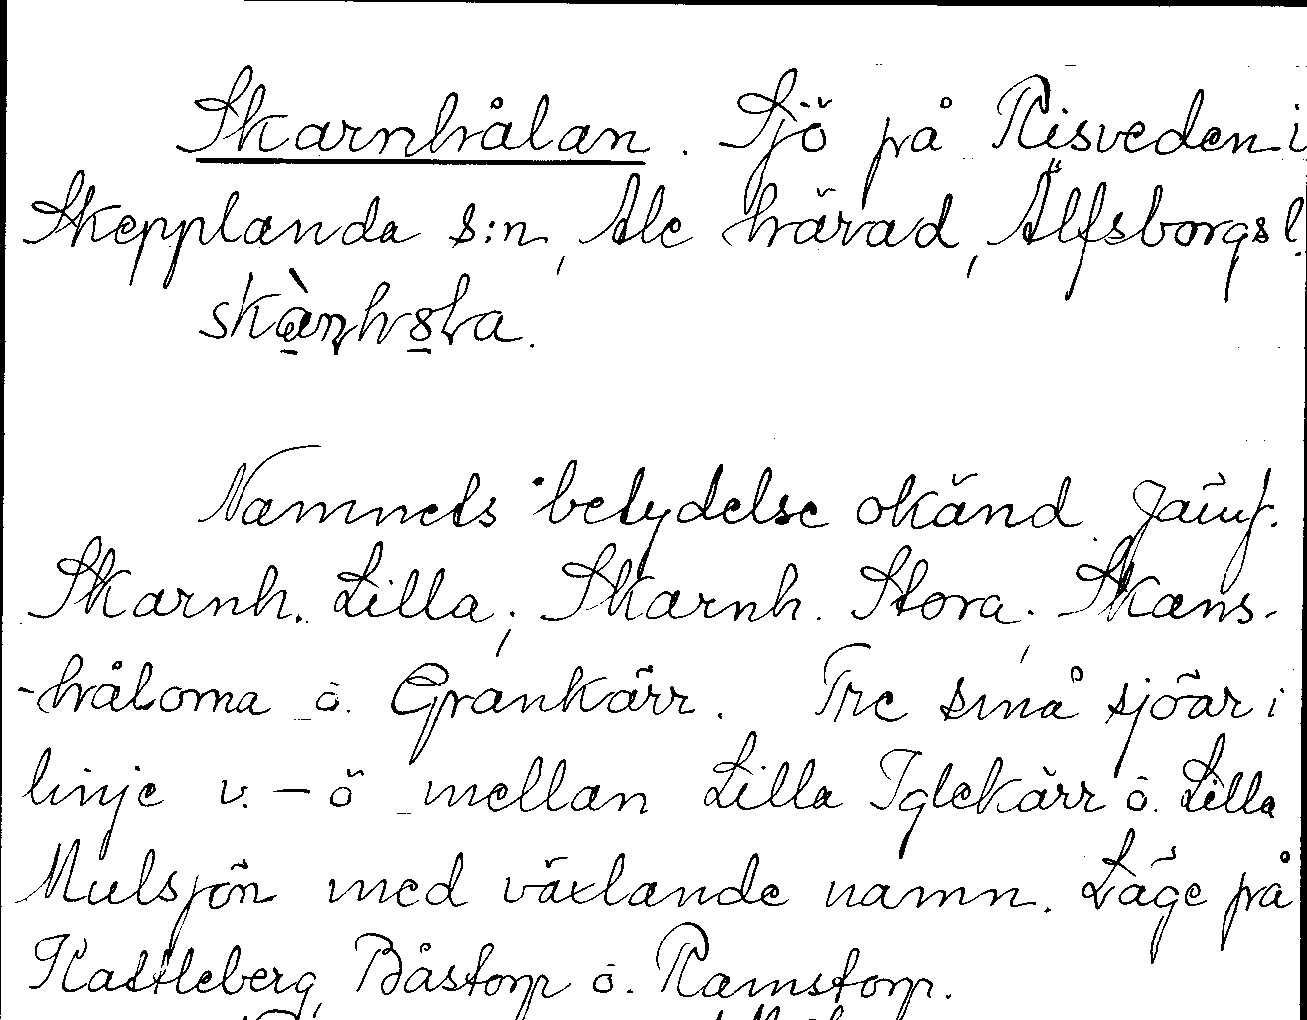 Skarnhålan. Sjö på Risveden i
Skepplanda s:n, Ale härad, Älfsborgs l.
Namnets betydelse okänd. Jämf.
Skarnh. Lilla; Skarnh. Stora; Skans-
-hålorna o. Grankärr. Tre små sjöar i
linje v. – ö mellan Lilla Iglekärr o. Lilla
Mulsjön med växlande namn. Läge på
Kattleberg, Båstorp o. Ramstorp.